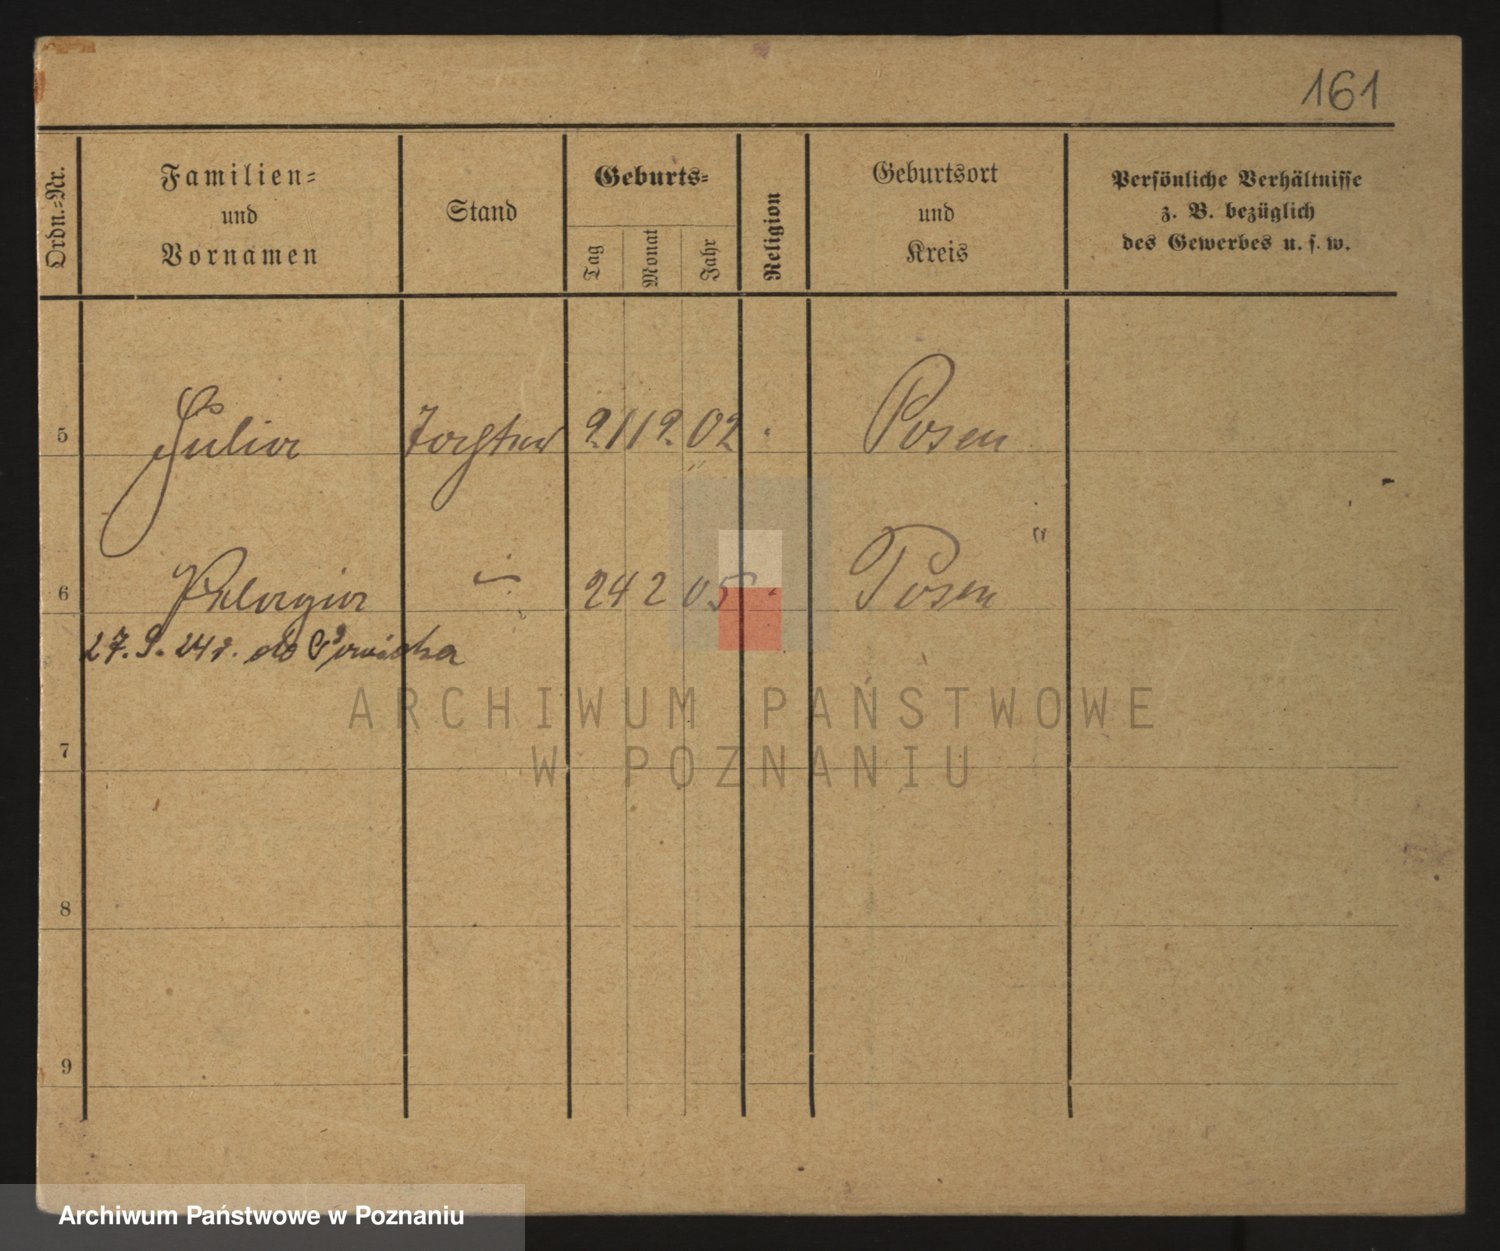 161
Ordn.-Nr.
Familien-
und
Vornamen
Stand
Geburts-
Tag
Monat
Jahr
Religion
Geburtsort
und
Kreis
Persönliche Verhältnisse
z. B. bezüglich
des Gewerbes u. s. w.
5 Julia Tochter 21 12 02 Posen
6 Pelagia " 24 2 05 Posen "
27. 9. 24 r. do
7
8
9
ARCHIWUM PAŃSTWOWE
W POZNANIU
Archiwum Państwowe w Poznaniu